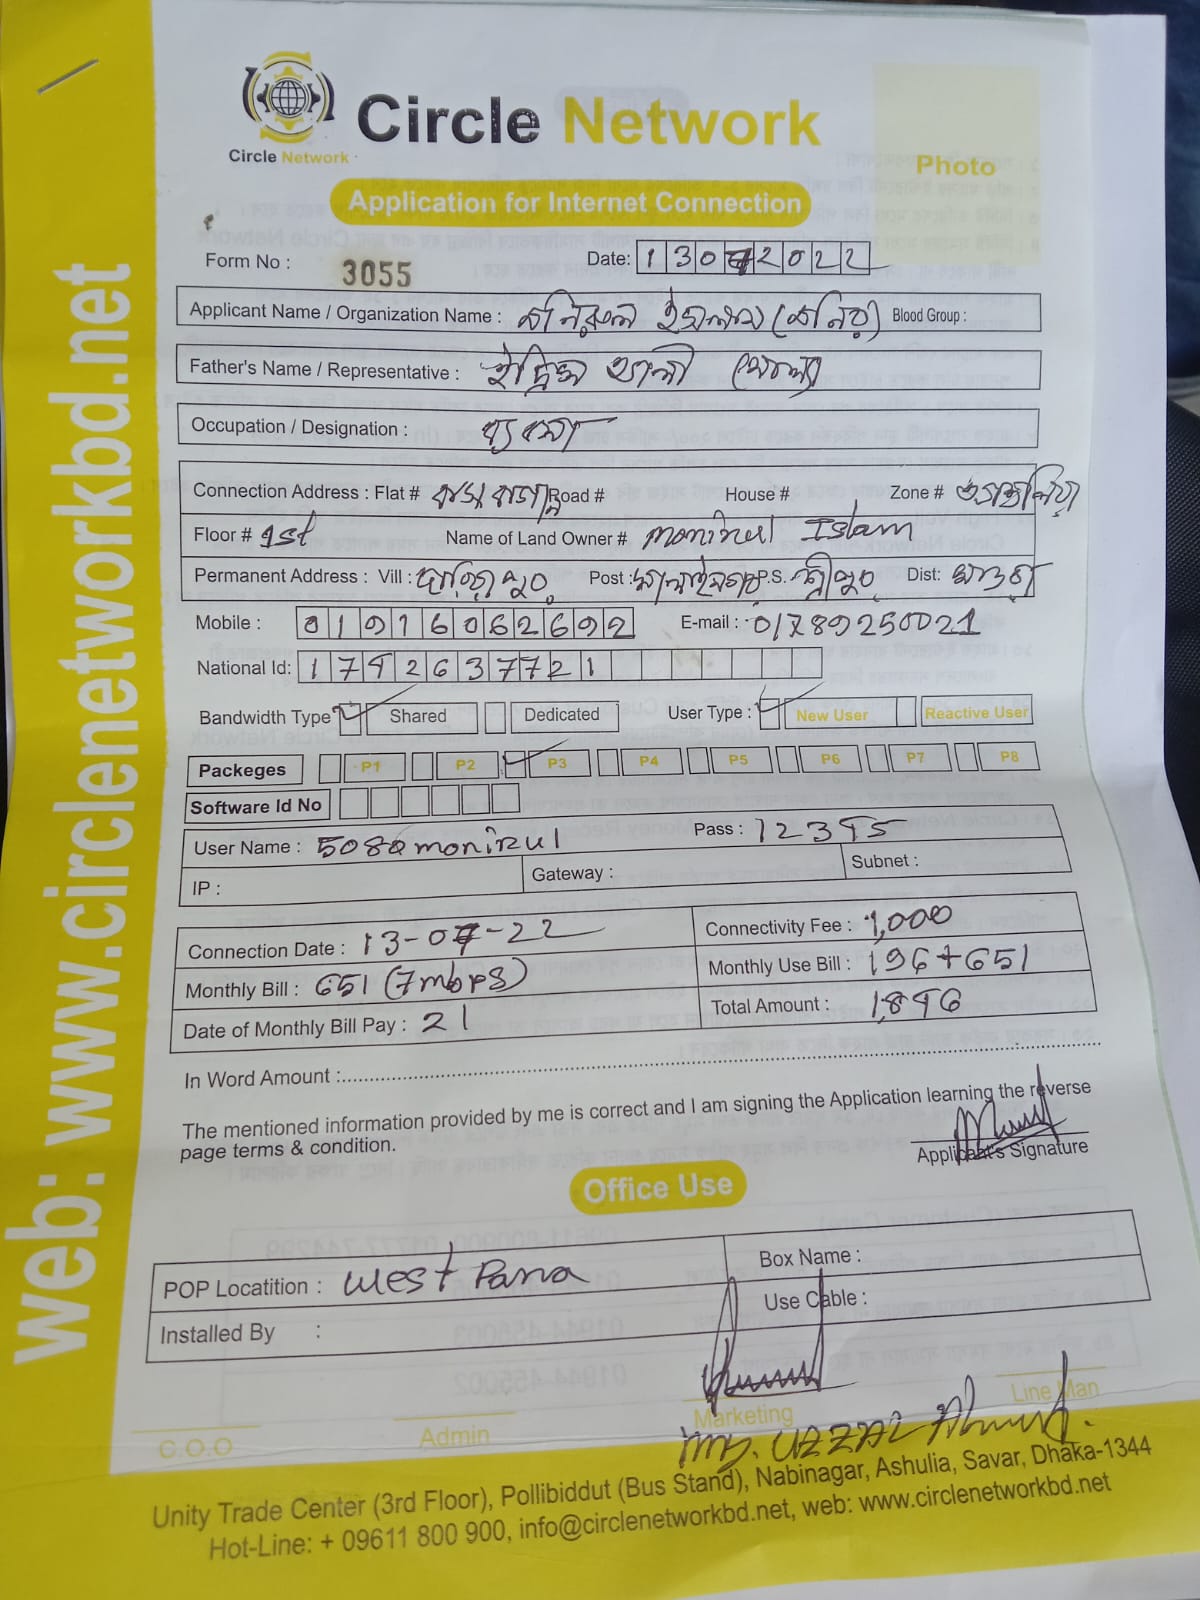 web: www.circlenetworkbd.net
Circle Network
Circle Network
Photo
Application for Internet Connection
Form No : 3055 Date: 13 07 2022
Applicant Name / Organization Name : মনিরুল ইসলাম (মনির) Blood Group :
Father's Name / Representative : ইদ্রিস আলী মোল্যা
Occupation / Designation : ব্যবসা
Connection Address : Flat # Road # House # Zone # আশুলিয়া
Floor # 1st Name of Land Owner # monirul Islam
Permanent Address : Vill : Post : P.S. শ্রীপুর Dist: মাগুরা
Mobile : 01916062692 E-mail : 01789250021
National Id: 1792637721
Bandwidth Type Shared Dedicated User Type : New User Reactive User
Packeges P1 P2 P3 P4 P5 P6 P7 P8
Software Id No
User Name : 5080monirul Pass : 12345
IP : Gateway : Subnet :
Connection Date : 13-07-22 Connectivity Fee : 1,000
Monthly Bill : 651 (7mbps) Monthly Use Bill : 196+651
Date of Monthly Bill Pay : 21 Total Amount : 1,846
In Word Amount :
The mentioned information provided by me is correct and I am signing the Application learning the reverse
page terms & condition.
Applicant's Signature
Office Use
POP Locatition : West Para Box Name :
Installed By : Use Cable :
C.O.O Admin Marketing Line Man
MD. UZZAL Ahmed.
Unity Trade Center (3rd Floor), Pollibiddut (Bus Stand), Nabinagar, Ashulia, Savar, Dhaka-1344
Hot-Line: + 09611 800 900, info@circlenetworkbd.net, web: www.circlenetworkbd.net